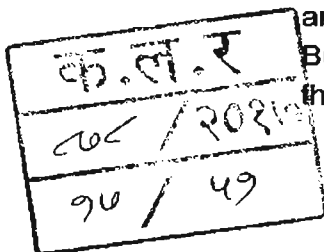 क.ल.र
८७८ / २०१७
१७ / ५१